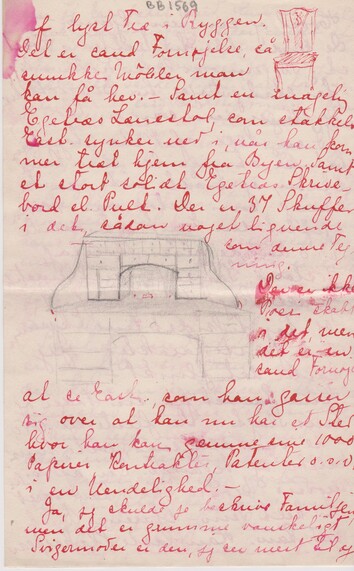 BB1569
af lyst Træ i Ryggen.
Det er en sand Fornøjelse, så
smukke Möbler man
kan få her. – Samt en mægtig
Egetræs Lænestol, som stakkels
East. synker ned i, når han kom-
mer træt hjem fra Byen, samt
et stort solidt Egetræs Skrive-
bord el. Pult. Der er 37 Skuffer
i det, sådan noget lignende
som denne Teg-
ning.
Der er ikke
Poesi
i det, men
det er en
sand Fornøj
at se East., som han
sig over at han nu har et Sted
hvor han kan gemme sine 1000
Papirer Kontrakter, Patenter o.s.v.
i en Uendelighed. –
Ja, jeg skulde jo beskrive Familien
men det er grumme vanskeligt
Svigermoder er den, jeg er mest